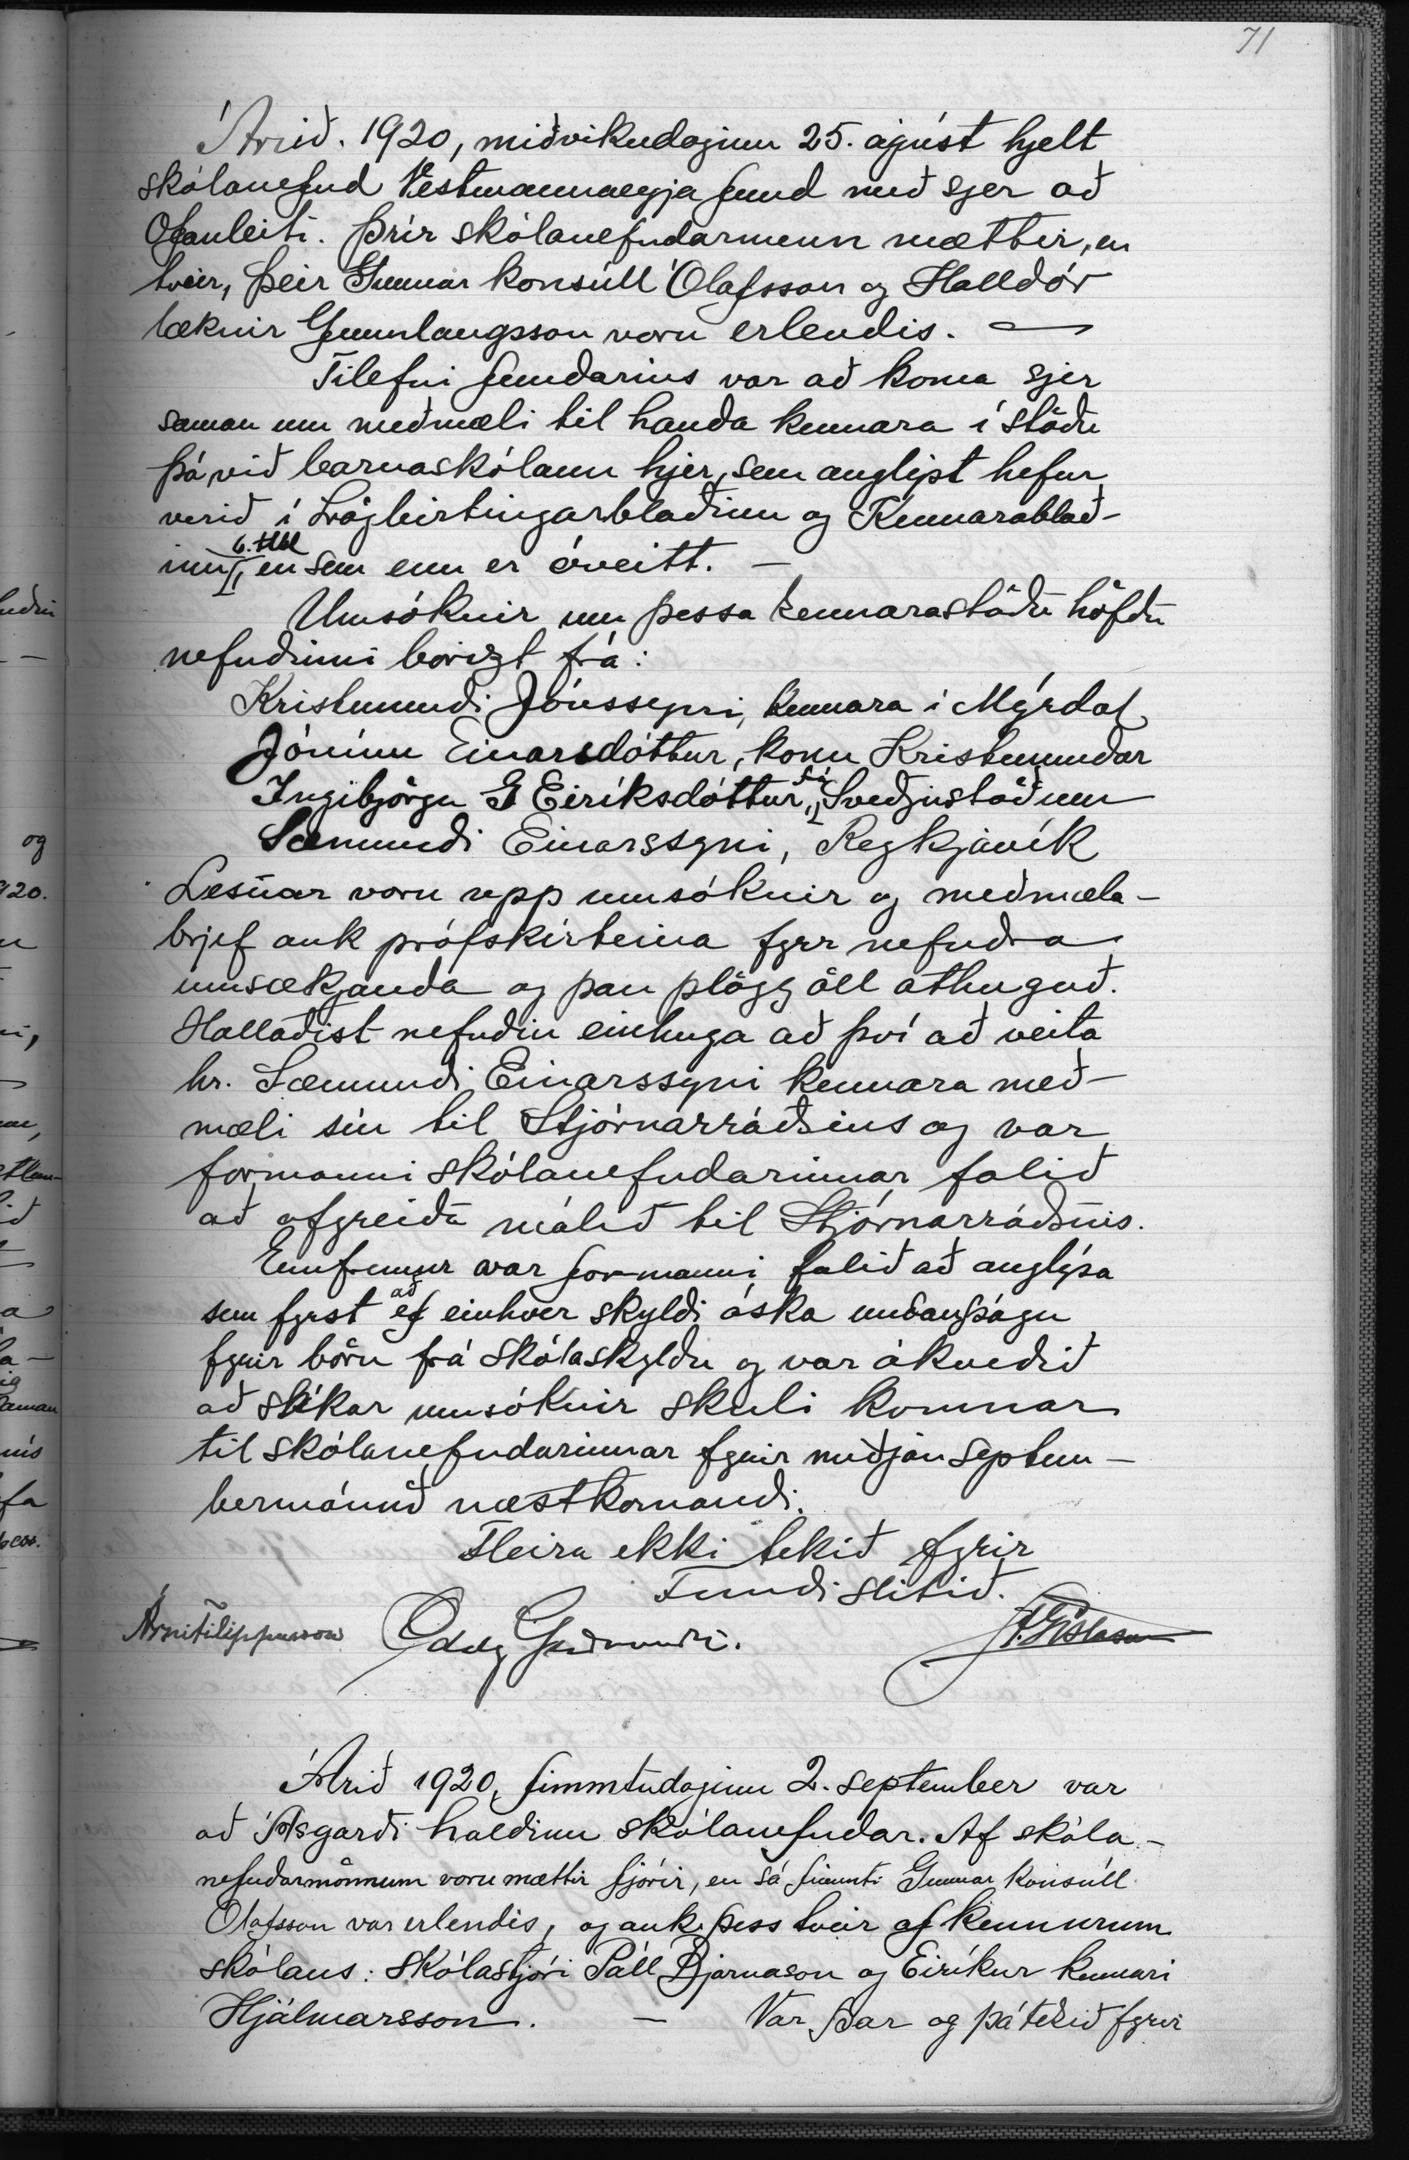 71
Árið. 1920, miðvikudaginn 25. ágúst hjelt
skólanefnd Vestmannaeyja fund með sjer að
Ofanleiti. Þrír skólanefndarmenn mættir, en
tveir, þeir Gunnar konsúll Ólafsson og Halldór
læknir Gunnlaugsson voru erlendis. —
Tilefni fundarins var að koma sjer
saman um meðmæli til handa kennara í stöðu
þá við barnaskólann hjer, sem auglýst hefur
verið í Lögbirtingarblaðinu og Kennarablað-
6. tbl
inu, en sem enn er óveitt. —
Umsóknir um þessa kennarastöðu höfðu
nefndinni borizt frá:
Kristmundi Jónssyni, kennara í Mýrdal
Jónínu Einarsdóttur, konu Kristmundar
Ingibjörgu G Eiríksdóttur, frá Sveðjustöðum
Sæmundi Einarssyni, Reykjavík
Lesnar voru upp umsóknir og meðmæla-
brjef auk prófskírteina fyrr nefndra
umsækjenda og þau plögg öll athuguð.
Hallaðist nefndin einhuga að því að veita
hr. Sæmundi Einarssyni kennara með-
mæli sín til Stjórnarráðsins og var
formanni skólanefndarinnar falið
að afgreiða málið til Stjórnarráðsins.
Ennfremur var formanni falið að auglýsa
sem fyrst að ef einhver skyldi óska undanþágu
fyrir börn frá skólaskyldu og var ákveðið
að slíkar umsóknir skuli komnar
til skólanefndarinnar fyrir miðjan septem-
bermánuð næstkomandi.
Fleira ekki tekið fyrir
Fundi slitið.
Árni Filippusson Oddg Guðmunds. J. Gíslason
Árið 1920, fimmtudaginn 2. september var
að Ásgarði haldinn skólanefndar. Af skóla-
nefndarmönnum voru mættir fjórir, en sá fimmti Gunnar konsúll
Ólafsson var erlendis, og auk þess tveir af kennurum
skólans: skólastjóri Páll Bjarnason og Eiríkur kennari
Hjálmarsson. — Var þar og þá tekið fyrir